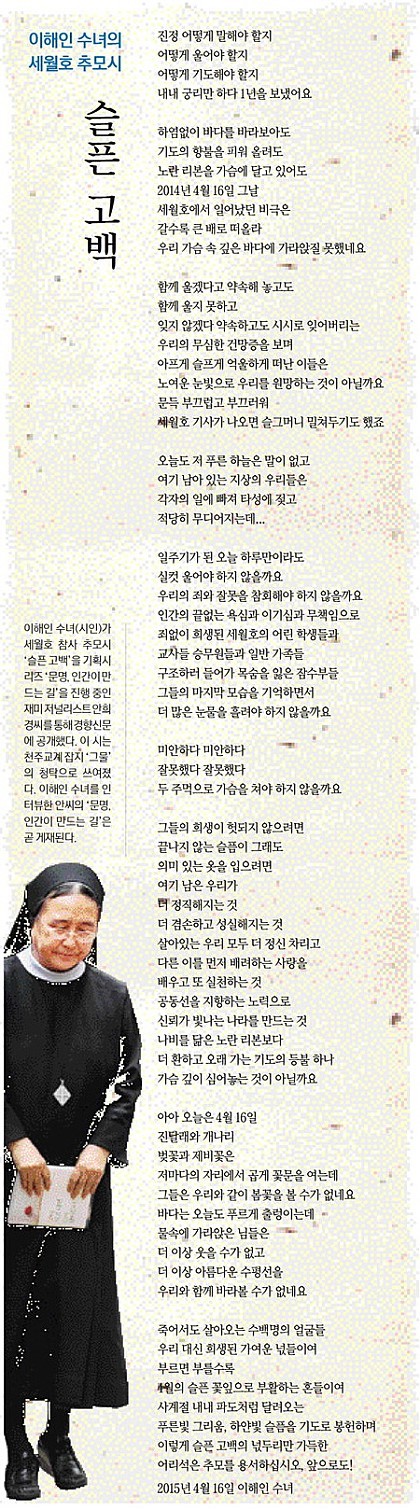 이해인 수녀의
세월호 추모시
슬픈 고백
진정 어떻게 말해야 할지
어떻게 울어야 할지
어떻게 기도해야 할지
내내 궁리만 하다 1년을 보냈어요
하염없이 바다를 바라보아도
기도의 향불을 피워 올려도
노란 리본을 가슴에 달고 있어도
2014년 4월 16일 그날
세월호에서 일어났던 비극은
갈수록 큰 배로 떠올라
우리 가슴 속 깊은 바다에 가라앉질 못했네요
함께 울겠다고 약속해 놓고도
함께 울지 못하고
잊지 않겠다 약속하고도 시시로 잊어버리는
우리의 무심한 건망증을 보며
아프게 슬프게 억울하게 떠난 이들은
노여운 눈빛으로 우리를 원망하는 것이 아닐까요
문득 부끄럽고 부끄러워
세월호 기사가 나오면 슬그머니 밀쳐두기도 했죠
오늘도 저 푸른 하늘은 말이 없고
여기 남아 있는 지상의 우리들은
각자의 일에 빠져 타성에 젖고
적당히 무디어지는데...
일주기가 된 오늘 하루만이라도
실컷 울어야 하지 않을까요
우리의 죄와 잘못을 참회해야 하지 않을까요
인간의 끝없는 욕심과 이기심과 무책임으로
죄없이 희생된 세월호의 어린 학생들과
교사들 승무원들과 일반 가족들
구조하러 들어가 목숨을 잃은 잠수부들
그들의 마지막 모습을 기억하면서
더 많은 눈물을 흘려야 하지 않을까요
미안하다 미안하다
잘못했다 잘못했다
두 주먹으로 가슴을 쳐야 하지 않을까요
그들의 희생이 헛되지 않으려면
끝나지 않는 슬픔이 그래도
의미 있는 옷을 입으려면
여기 남은 우리가
더 정직해지는 것
더 겸손하고 성실해지는 것
살아있는 우리 모두 더 정신 차리고
다른 이를 먼저 배려하는 사랑을
배우고 또 실천하는 것
공동선을 지향하는 노력으로
신뢰가 빛나는 나라를 만드는 것
나비를 닮은 노란 리본보다
더 환하고 오래 가는 기도의 등불 하나
가슴 깊이 심어놓는 것이 아닐까요
아아 오늘은 4월 16일
진달래와 개나리
벚꽃과 제비꽃은
저마다의 자리에서 곱게 꽃문을 여는데
그들은 우리와 같이 봄꽃을 볼 수가 없네요
바다는 오늘도 푸르게 출렁이는데
물속에 가라앉은 님들은
더 이상 웃을 수가 없고
더 이상 아름다운 수평선을
우리와 함께 바라볼 수가 없네요
죽어서도 살아오는 수백명의 얼굴들
우리 대신 희생된 가여운 넋들이여
부르면 부를수록
4월의 슬픈 꽃잎으로 부활하는 혼들이여
사계절 내내 파도처럼 달려오는
푸른빛 그리움, 하얀빛 슬픔을 기도로 봉헌하며
이렇게 슬픈 고백의 넋두리만 가득한
어리석은 추모를 용서하십시오, 앞으로도!
2015년 4월 16일 이해인 수녀
이해인 수녀(시인)가
세월호 참사 추모시
‘슬픈 고백’을 기획시
리즈 ‘문명, 인간이 만
드는 길’을 진행 중인
재미 저널리스트 안희
경씨를 통해 경향신문
에 공개했다. 이 시는
천주교계 잡지 ‘그물’
의 청탁으로 쓰여졌
다. 이해인 수녀를 인
터뷰한 안씨의 ‘문명,
인간이 만드는 길’은
곧 게재된다.